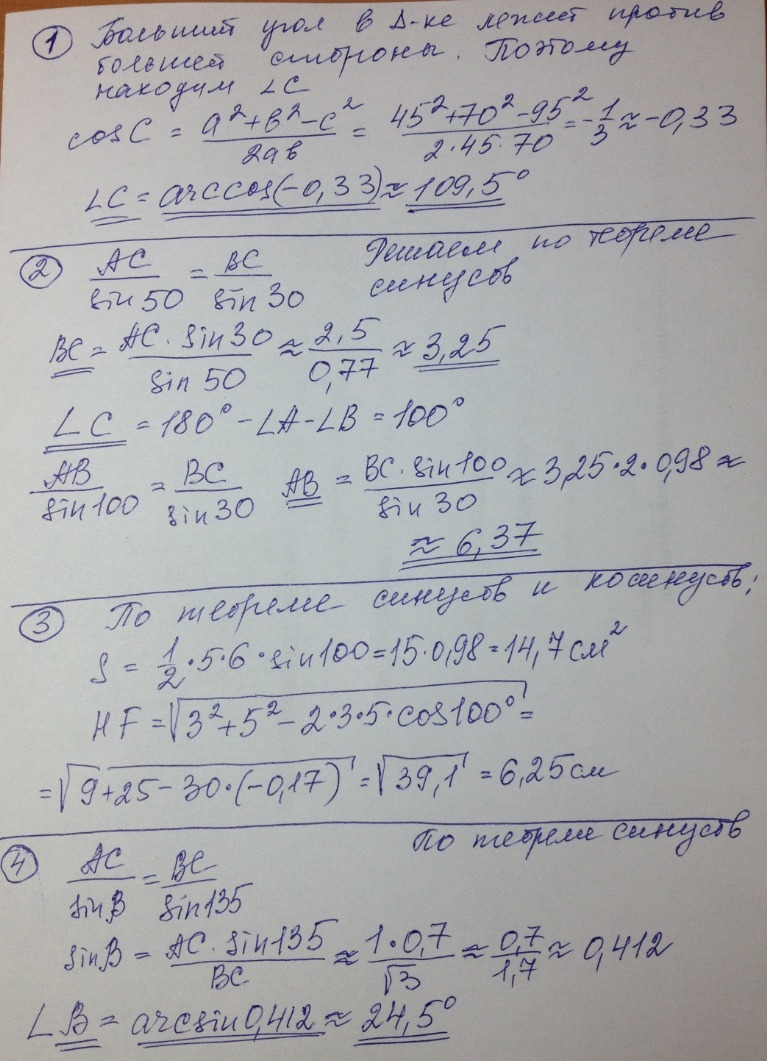 1 Больший угол в Δ-ке лежит против
большей стороны. Поэтому
находим ∠C
cosC = (a²+b²-c²)/(2ab) = (45²+70²-95²)/(2·45·70) = -1/3 ≈ -0,33
∠C = arccos(-0,33) ≈ 109,5°
2 AC/sin50 = BC/sin30 Решаем по теореме
синусов
BC = AC·sin30/sin50 ≈ 2,5/0,77 ≈ 3,25
∠C = 180° - ∠A - ∠B = 100°
AB/sin100 = BC/sin30 AB = BC·sin100/sin30 ≈ 3,25·2·0,98 ≈
≈ 6,37
3 По теореме синусов и косинусов:
S = 1/2·5·6·sin100 = 15·0,98 = 14,7 см²
HF = √(3²+5²-2·3·5·cos100°) =
= √(9+25-30·(-0,17)) = √39,1 = 6,25 см
4 AC/sinB = BC/sin135 По теореме синусов
sinB = AC·sin135/BC ≈ 1·0,7/√3 ≈ 0,7/1,7 ≈ 0,412
∠B = arcsin0,412 ≈ 24,5°